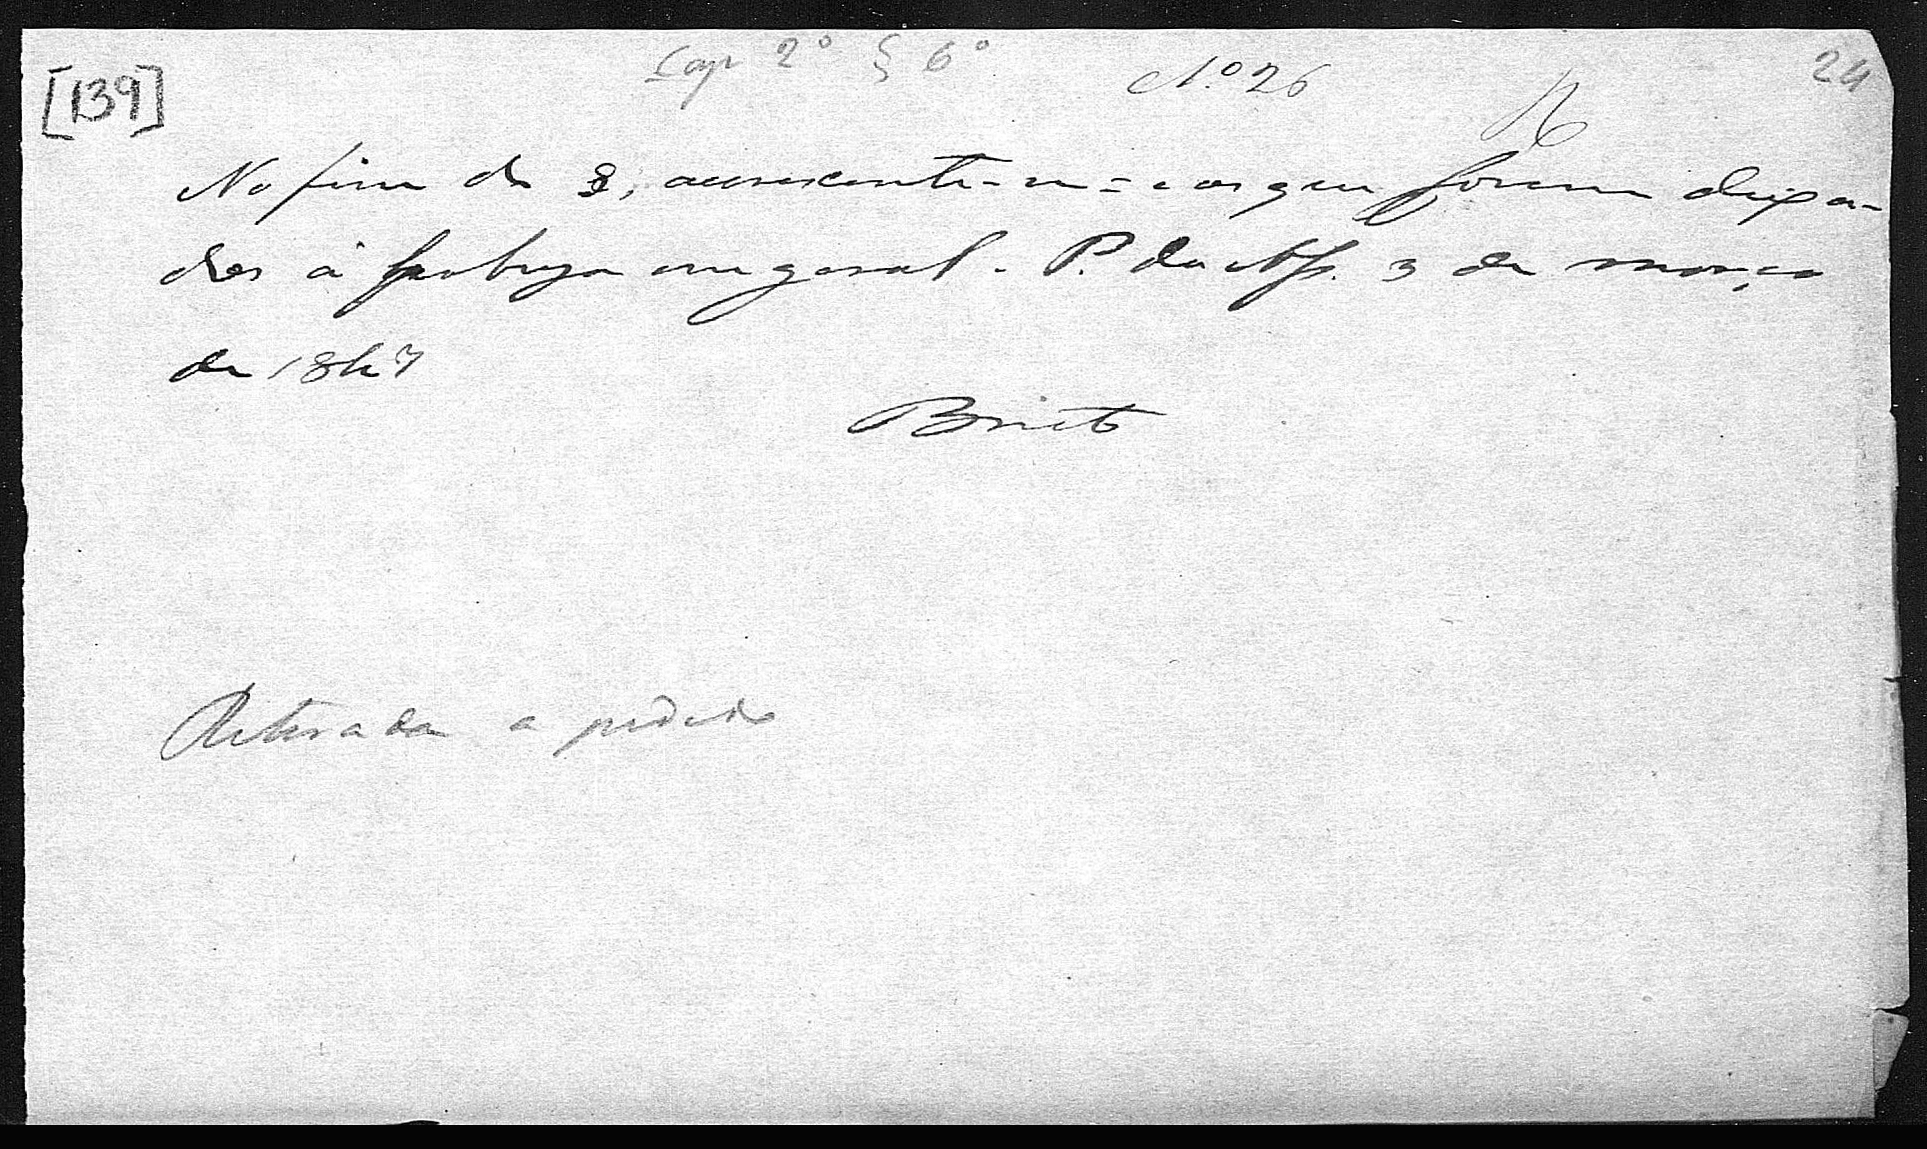 [139] Cap 2º § 6º Nº 26 R 24
No fim do §, accrescente-se = e os que forem deixa-
dos á pobreza em geral. P. da Ass. 3 de março
de 1847
Brito
Retirada a pedido